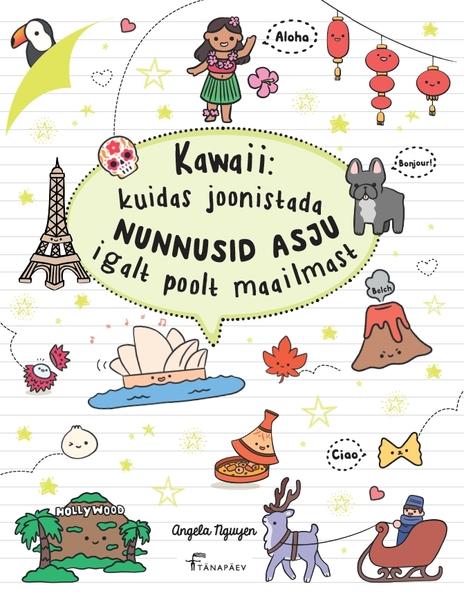 Aloha
Kawaii:
kuidas joonistada
NUNNUSID ASJU
igalt poolt maailmast
Bonjour!
Belch
Ciao
HOLLYWOOD
Angela Nguyen
TÄNAPÄEV